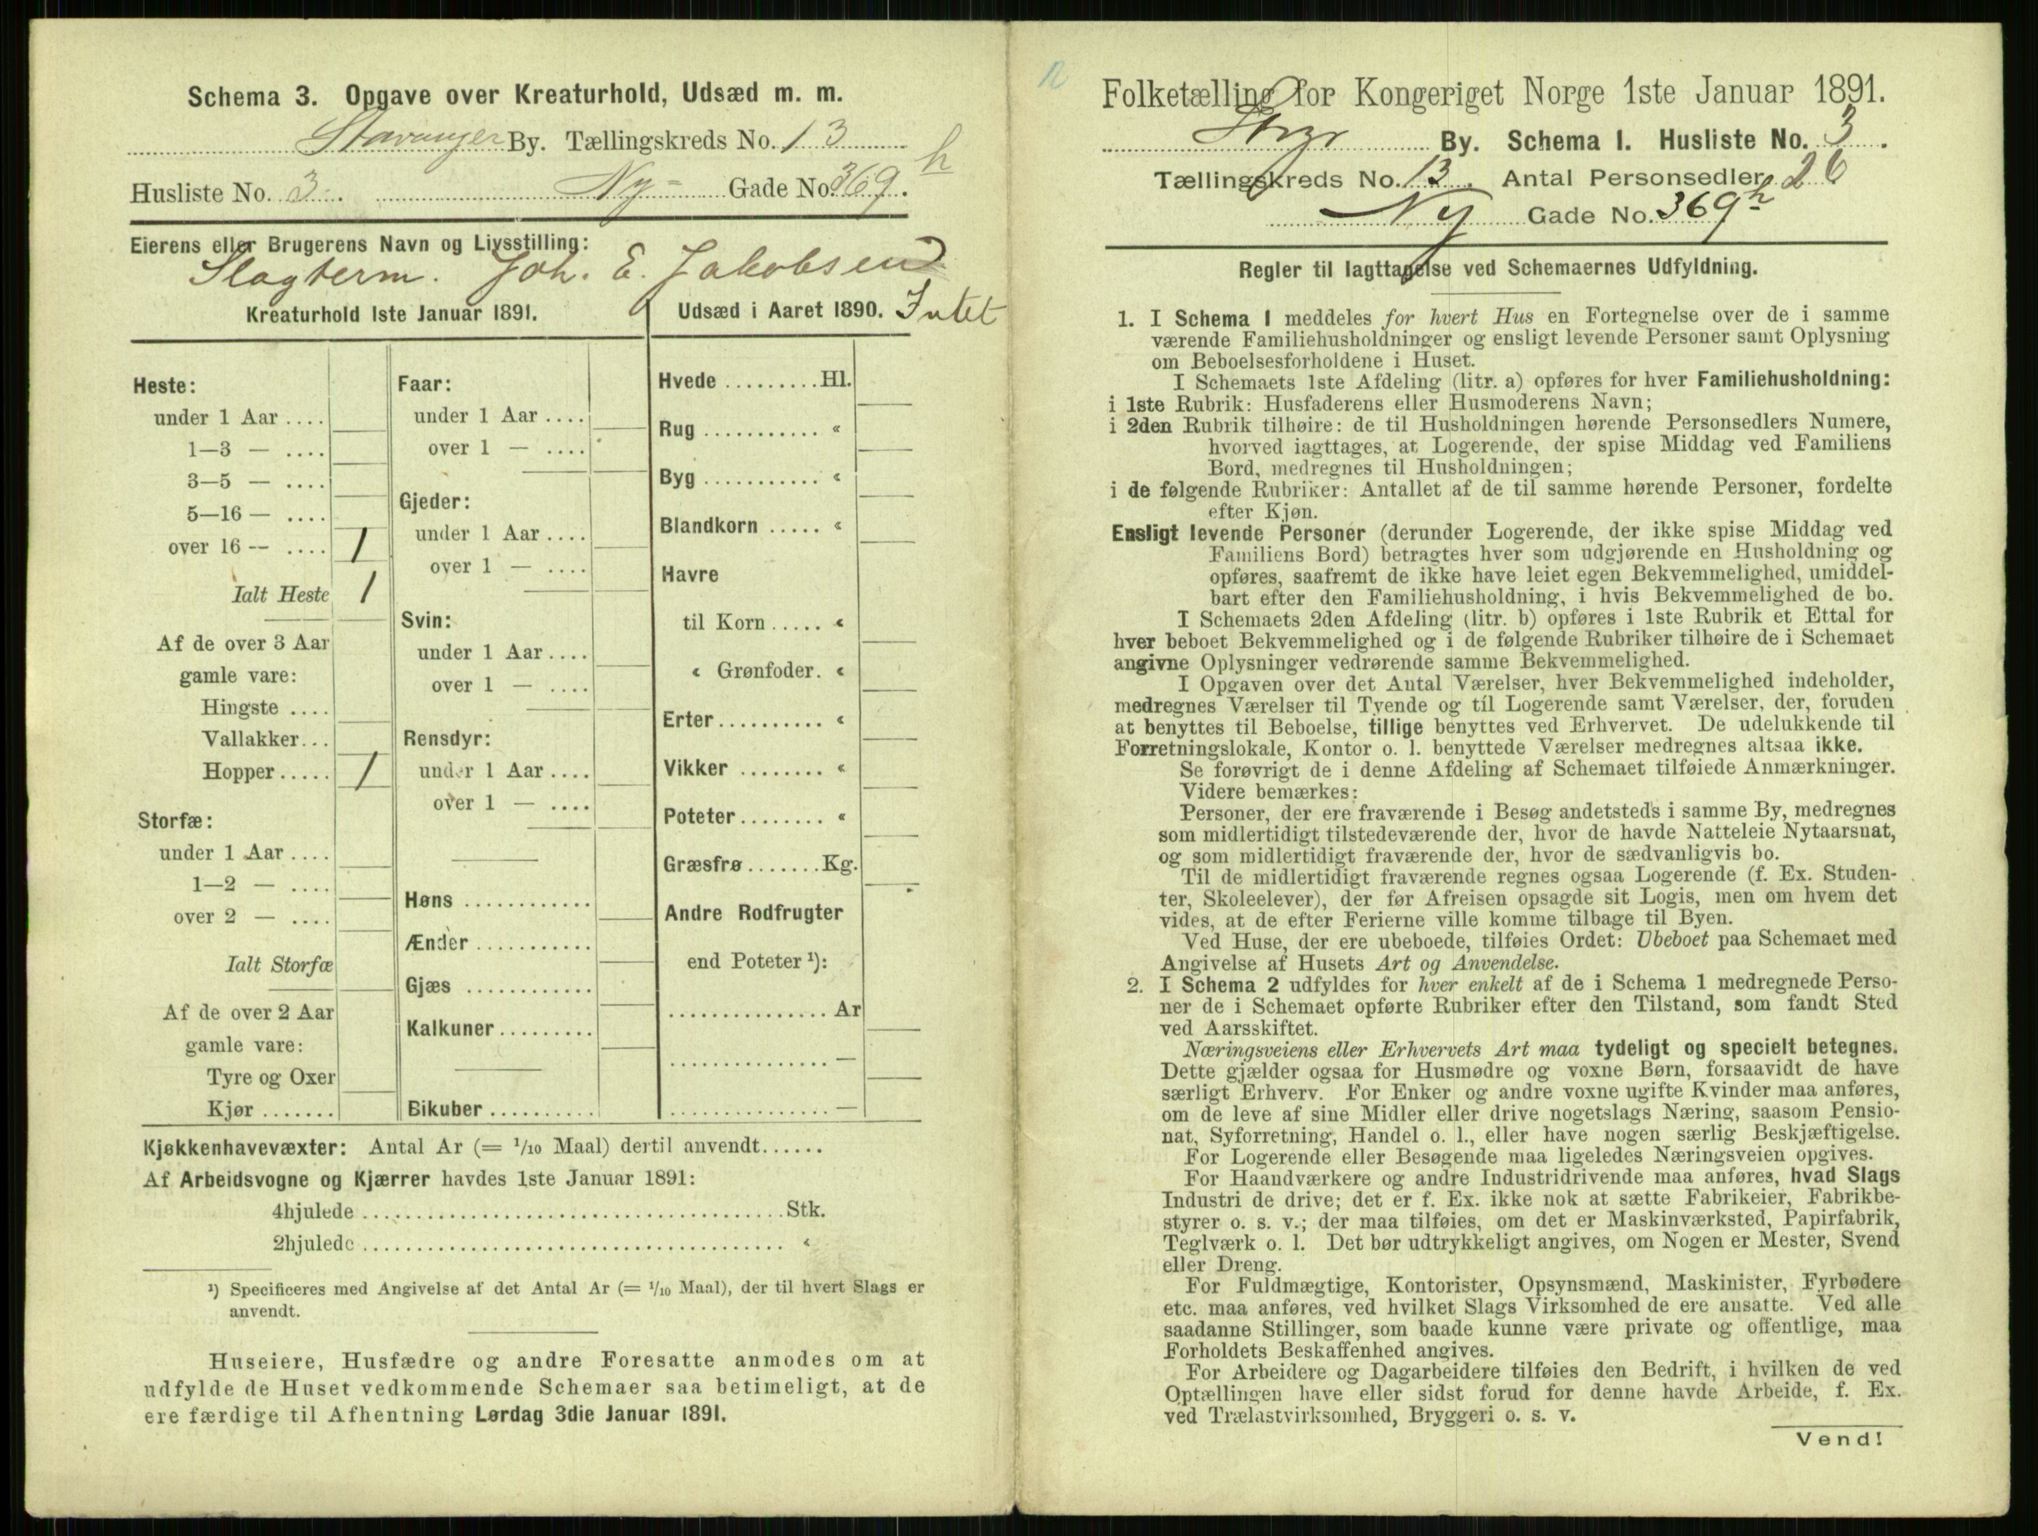 Schema 3. Opgave over Kreaturhold, Udsæd m. m.
Stavanger By. Tællingskreds No. 13
Husliste No. 3. Ny- Gade No. 369 h.
Eierens eller Brugerens Navn og Livsstilling:
Slagterm. Joh. E. Jakobsen
Kreaturhold 1ste Januar 1891.
Heste:
under 1 Aar ....
1—3 — ....
3—5 — ....
5—16 — ....
over 16 — .... 1
Ialt Heste 1
Af de over 3 Aar
gamle vare:
Hingste ....
Vallakker...
Hopper ..... 1
Storfæ:
under 1 Aar ....
1—2 — ....
over 2 — ....
Ialt Storfæ
Af de over 2 Aar
gamle vare:
Tyre og Oxer
Kjør .......
Faar:
under 1 Aar ....
over 1 — ....
Gjeder:
under 1 Aar ....
over 1 — ....
Svin:
under 1 Aar ....
over 1 — ....
Rensdyr:
under 1 Aar ....
over 1 — ....
Høns ............
Ænder ...........
Gjæs ............
Kalkuner .........
Bikuber ..........
Udsæd i Aaret 1890. Intet
Hvede ......... Hl.
Rug ........... «
Byg ........... «
Blandkorn ..... «
Havre
til Korn ..... «
« Grønfoder. «
Erter .......... «
Vikker ........ «
Poteter ........ «
Græsfrø ....... Kg.
Andre Rodfrugter
end Poteter ¹):
............... Ar
............... —
............... —
Kjøkkenhavevæxter: Antal Ar (= 1/10 Maal) dertil anvendt......
Af Arbeidsvogne og Kjærrer havdes 1ste Januar 1891:
4hjulede ........................................ Stk.
2hjulede ........................................ «
¹) Specificeres med Angivelse af det Antal Ar (= 1/10 Maal), der til hvert Slags er
anvendt.
Huseiere, Husfædre og andre Foresatte anmodes om at
udfylde de Huset vedkommende Schemaer saa betimeligt, at de
ere færdige til Afhentning Lørdag 3die Januar 1891.
12
Folketælling for Kongeriget Norge 1ste Januar 1891.
By. Schema 1. Husliste No. 3.
Tællingskreds No. 13. Antal Personsedler 26
Ny Gade No. 369 h
Regler til Iagttagelse ved Schemaernes Udfyldning.
1. I Schema 1 meddeles for hvert Hus en Fortegnelse over de i samme
værende Familiehusholdninger og ensligt levende Personer samt Oplysning
om Beboelsesforholdene i Huset.
I Schemaets 1ste Afdeling (litr. a) opføres for hver Familiehusholdning:
i 1ste Rubrik: Husfaderens eller Husmoderens Navn;
i 2den Rubrik tilhøire: de til Husholdningen hørende Personsedlers Numere,
hvorved iagttages, at Logerende, der spise Middag ved Familiens
Bord, medregnes til Husholdningen;
i de følgende Rubriker: Antallet af de til samme hørende Personer, fordelte
efter Kjøn.
Ensligt levende Personer (derunder Logerende, der ikke spise Middag ved
Familiens Bord) betragtes hver som udgjørende en Husholdning og
opføres, saafremt de ikke have leiet egen Bekvemmelighed, umiddel-
bart efter den Familiehusholdning, i hvis Bekvemmelighed de bo.
I Schemaets 2den Afdeling (litr. b) opføres i 1ste Rubrik et Ettal for
hver beboet Bekvemmelighed og i de følgende Rubriker tilhøire de i Schemaet
angivne Oplysninger vedrørende samme Bekvemmelighed.
I Opgaven over det Antal Værelser, hver Bekvemmelighed indeholder,
medregnes Værelser til Tyende og til Logerende samt Værelser, der, foruden
at benyttes til Beboelse, tillige benyttes ved Erhvervet. De udelukkende til
Forretningslokale, Kontor o. l. benyttede Værelser medregnes altsaa ikke.
Se forøvrigt de i denne Afdeling af Schemaet tilføiede Anmærkninger.
Videre bemærkes:
Personer, der ere fraværende i Besøg andetsteds i samme By, medregnes
som midlertidigt tilstedeværende der, hvor de havde Natteleie Nytaarsnat,
og som midlertidigt fraværende der, hvor de sædvanligvis bo.
Til de midlertidigt fraværende regnes ogsaa Logerende (f. Ex. Studen-
ter, Skoleelever), der før Afreisen opsagde sit Logis, men om hvem det
vides, at de efter Ferierne ville komme tilbage til Byen.
Ved Huse, der ere ubeboede, tilføies Ordet: Ubeboet paa Schemaet med
Angivelse af Husets Art og Anvendelse.
2. I Schema 2 udfyldes for hver enkelt af de i Schema 1 medregnede Perso-
ner de i Schemaet opførte Rubriker efter den Tilstand, som fandt Sted
ved Aarsskiftet.
Næringsveiens eller Erhvervets Art maa tydeligt og specielt betegnes.
Dette gjælder ogsaa for Husmødre og voxne Børn, forsaavidt de have
særligt Erhverv. For Enker og andre voxne ugifte Kvinder maa anføres,
om de leve af sine Midler eller drive nogetslags Næring, saasom Pensio-
nat, Syforretning, Handel o. l., eller have nogen særlig Beskjæftigelse.
For Logerende eller Besøgende maa ligeledes Næringsveien opgives.
For Haandværkere og andre Industridrivende maa anføres, hvad Slags
Industri de drive; det er f. Ex. ikke nok at sætte Fabrikeier, Fabrikbe-
styrer o. s. v.; der maa tilføies, om det er Maskinværksted, Papirfabrik,
Teglværk o. l. Det bør udtrykkeligt angives, om Nogen er Mester, Svend
eller Dreng.
For Fuldmægtige, Kontorister, Opsynsmænd, Maskinister, Fyrbødere
etc. maa anføres, ved hvilket Slags Virksomhed de ere ansatte. Ved alle
saadanne Stillinger, som baade kunne være private og offentlige, maa
Forholdets Beskaffenhed angives.
For Arbeidere og Dagarbeidere tilføies den Bedrift, i hvilken de ved
Optællingen have eller sidst forud for denne havde Arbeide, f. Ex.
ved Trælastvirksomhed, Bryggeri o. s. v.
Vend!